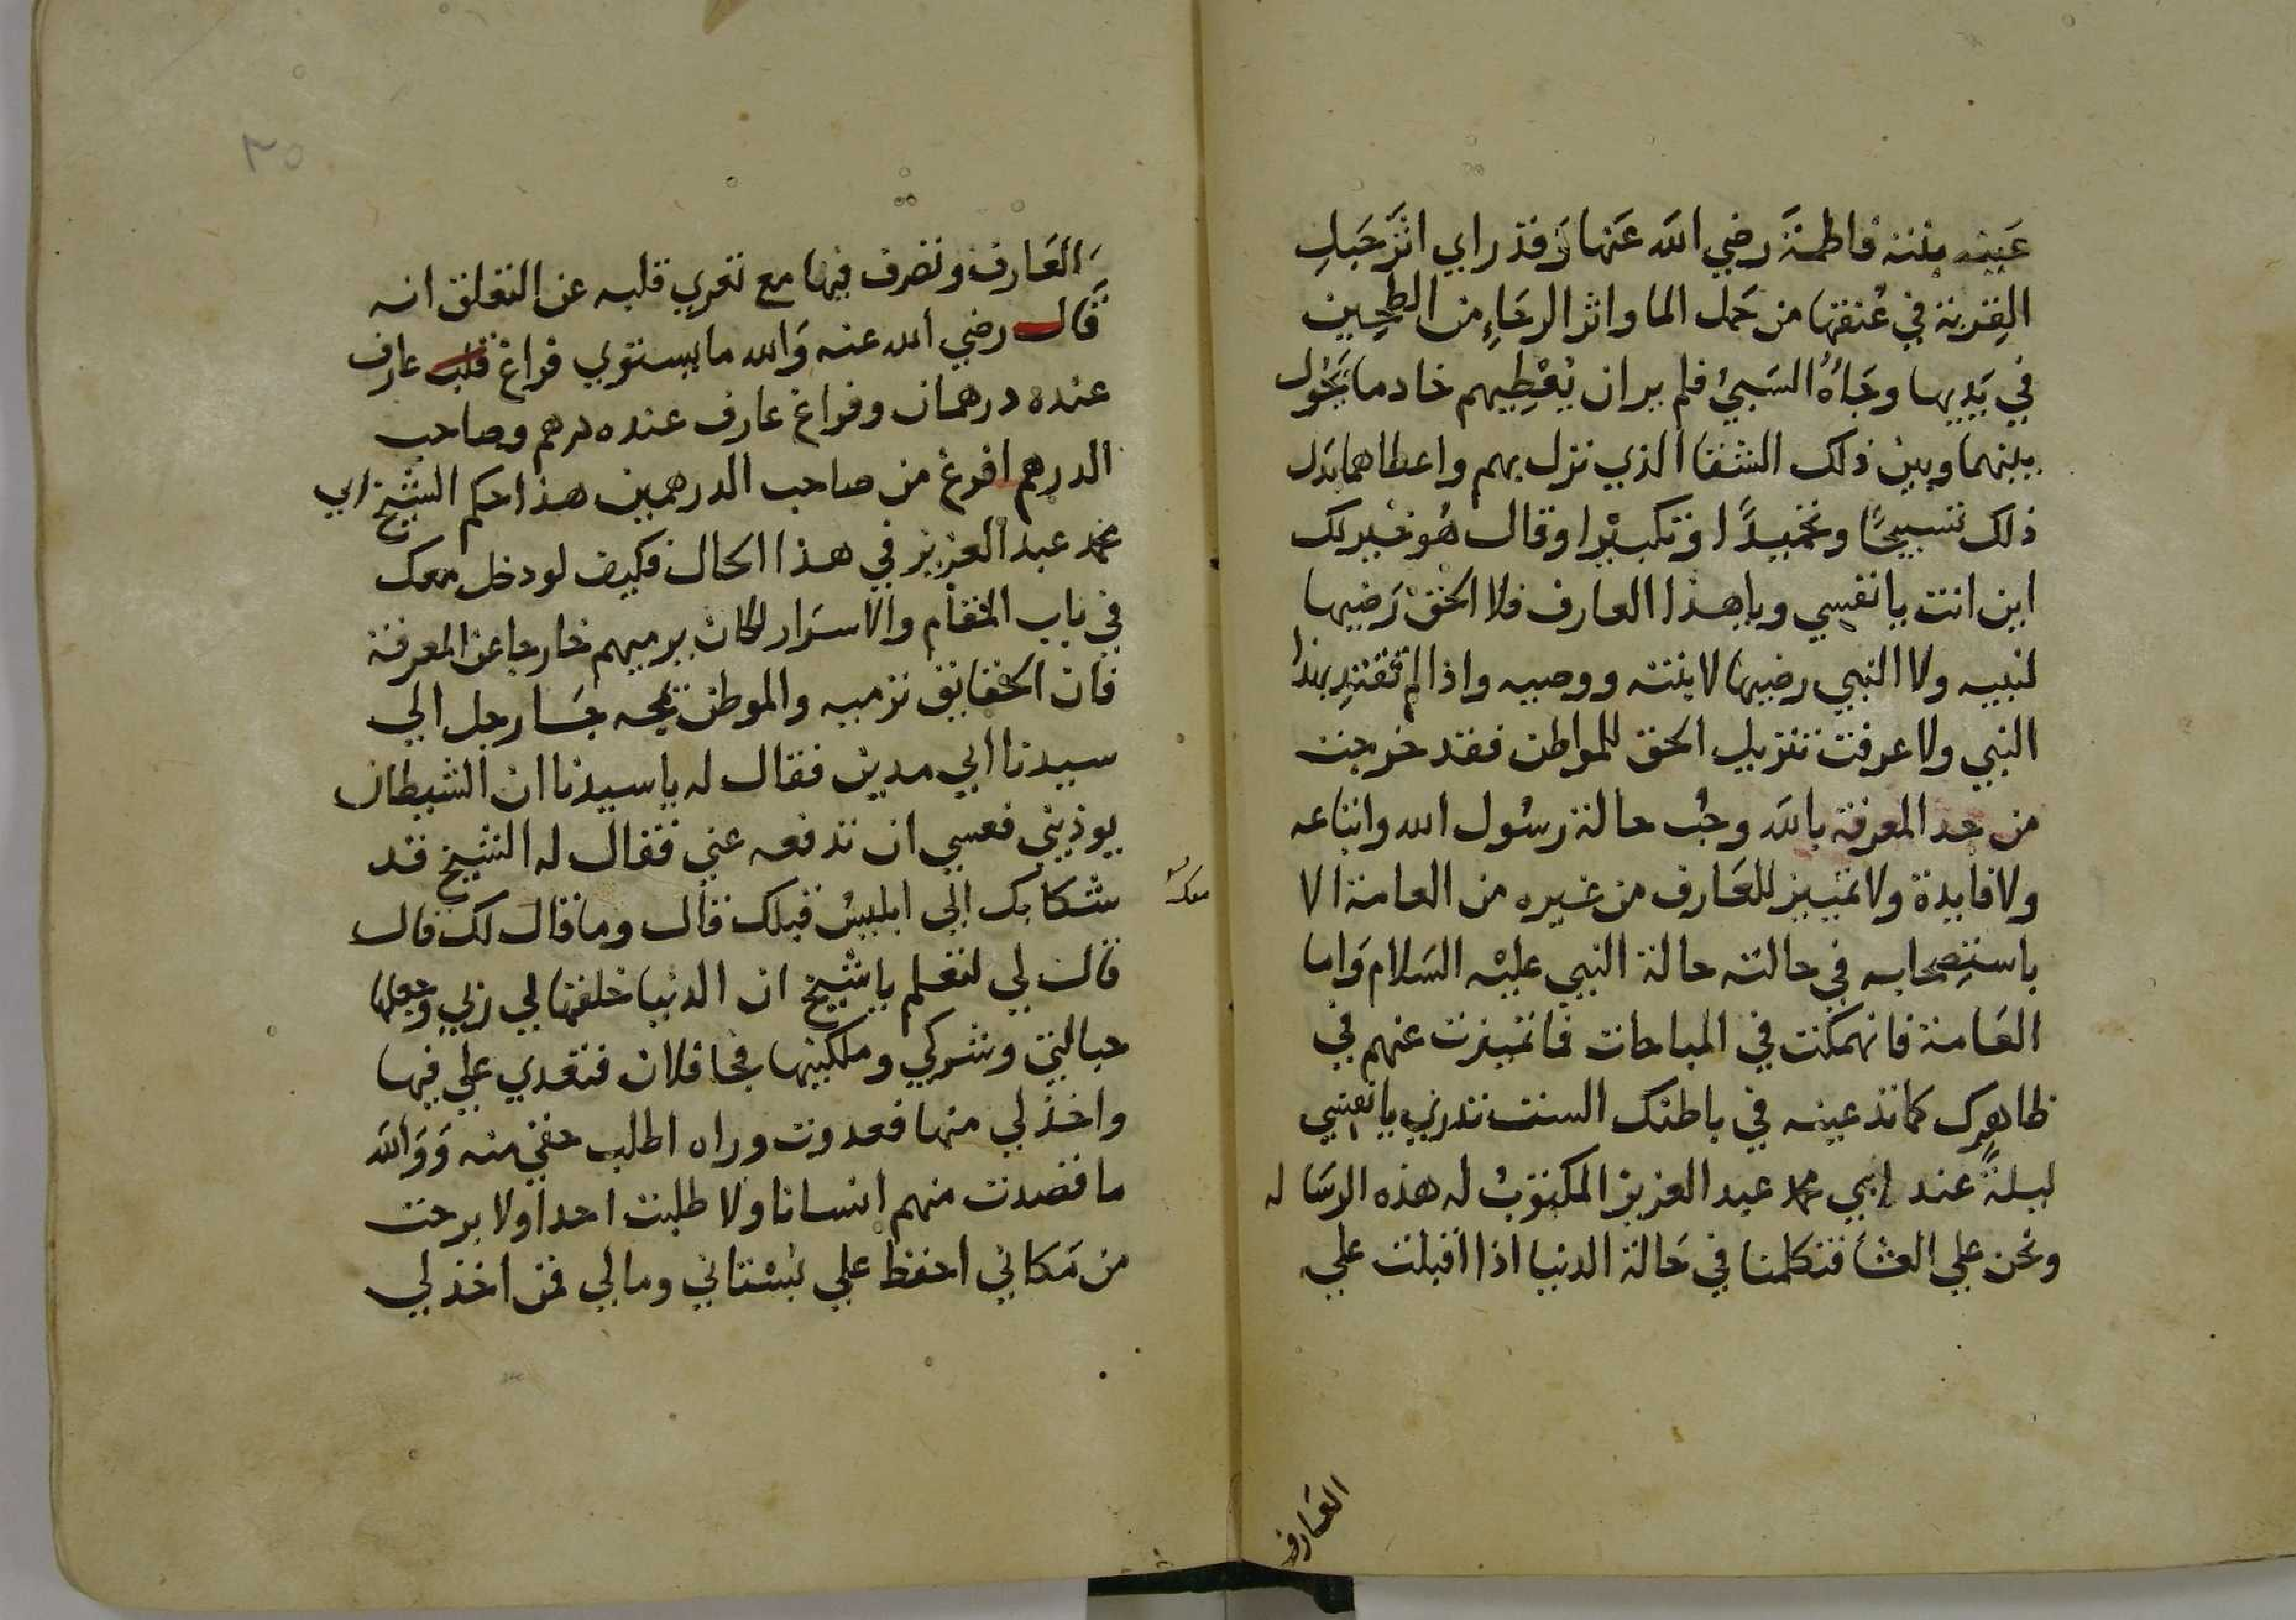 عينه بنته فاطمة رضي الله عنها وقد راي اثر حبل
القربة في عنقها من حمل الما واثر الرحاء من الطحين
في يديها وجاه السبي فلم ير ان يعطيهم خادما يحول
بينهما وبين ذلك الشقا الذي نزل بهم واعطاهما بدل
ذلك تسبيحا وتحميدا وتكبيرا وقال هو خير لك
اين انت يا نفسي ويا هذا العارف فلا الحق رضيها
لنبيه ولا النبي رضيها لابنته ووصيه واذا لم تقتد بهذا
النبي ولا عرفت تنزيل الحق للمواطن فقد خرجت
من حد المعرفة بالله وجب حالة رسول الله واتباعه
ولا فايدة ولا تمييز للعارف من غيره من العامة الا
باستصحابه في حالته حالة النبي عليه السلام واما
العامة فانهمكت في المباحات فما تميزت عنهم في
ظاهرك كما تدعينه في باطنك الست تدري يا نفسي
ليلة عند ابي محمد عبد العزيز المكتوب له هذه الرساله
ونحن علي العشا فتكلمنا في حالة الدنيا اذا اقبلت علي
العارف
٣٥
العارف وتصرف فيها مع تعري قلبه عن التعلق انه
قال رضي الله عنه والله ما يستوي فراغ قلب عارف
عنده درهمان وفراغ عارف عنده درهم وصاحب
الدرهم افرغ من صاحب الدرهمين هذا حكم الشيخ ابي
محمد عبد العزيز في هذا الحال فكيف لو دخل معك
في باب المقام والاسرار لكان يرميهم خارجا عن المعرفة
فان الحقايق ترميه والموطن يمجه جا رجل الي
سيدنا ابي مدين فقال له يا سيدنا ان الشيطان
يوذيني فعسي ان تدفعه عني فقال له الشيخ قد
شكا بك الي ابليس قبلك قال وما قال لك قال
قال لي لتعلم يا شيخ ان الدنيا خلقها لي ربي وجعلها
حبالتي وشركي وملكنيها فجا فلان فتعدي علي فيها
واخذ لي منها فعدوت وراه اطلب حقي منه ووالله
ما قصدت منهم انسانا ولا طلبت احدا ولا برحت
من مكاني احفظ علي بستاني ومالي فمن اخذ لي